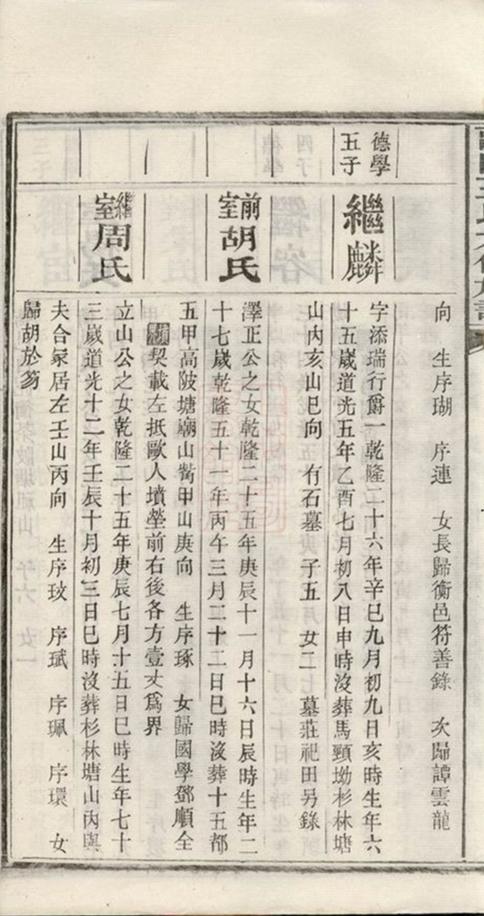 向　生序瑚　序連　女長歸衡邑符善錄　次歸譚雲龍
德學
五子
繼麟
字添瑞行爵一乾隆二十六年辛巳九月初九日亥時生年六
十五歲道光五年乙酉七月初八日申時沒葬馬頸坳杉林塘
山內亥山巳向　有石墓　子五　女二　墓莊祀田另錄
前室胡氏
澤正公之女乾隆二十五年庚辰十一月十六日辰時生年二
十七歲乾隆五十一年丙午三月二十二日巳時沒葬十五都
五甲高陂塘廟山觜甲山庚向　生序琢　女歸國學鄧順全
契載左抵歐人墳塋前右後各方壹丈為界
繼室周氏
立山公之女乾隆二十五年庚辰七月十五日巳時生年七十
三歲道光十二年壬辰十月初三日巳時沒葬杉林塘山內與
夫合冢居左壬山丙向　生序玟　序珷　序珮　序環　女
歸胡於芴